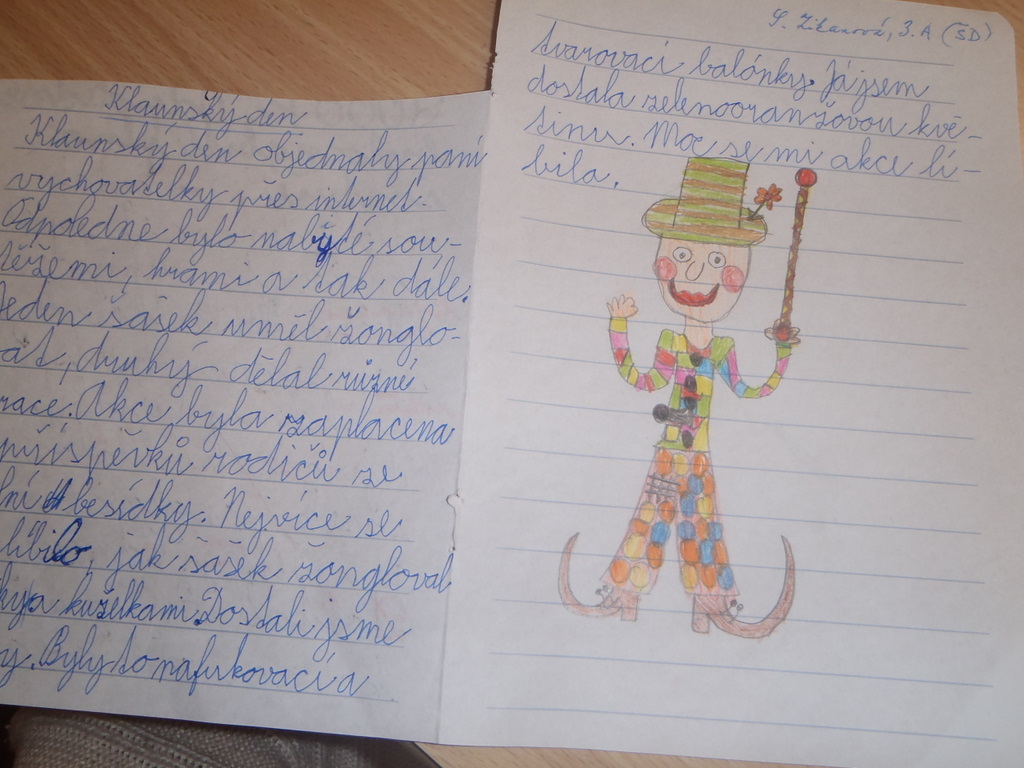 Klaunský den
Klaunský den objednaly paní
vychovatelky přes internet.
Odpoledne bylo nabyté sou-
těžemi, hrami a tak dále.
Jeden šašek uměl žonglo-
at, druhý dělal různé
race. Akce byla zaplacena
příspěvků rodičů ze
besídky. Nejvíce se
líbilo, jak šašek žongloval
kuželkami. Dostali jsme
y. Byly to nafukovací a
3.A (ŠD)
tvarovací balónky. Já jsem
dostala zelenooranžovou kvě-
tinu. Moc se mi akce lí-
bila.